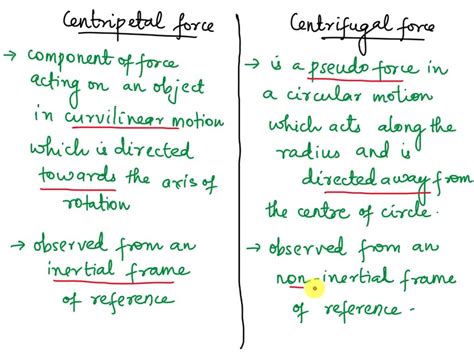 Centripetal force
→ component of force
acting on an object
in curvilinear motion
which is directed
towards the axis of
rotation
→ observed from an
inertial frame
of reference
Centrifugal force
→ is a pseudo force in
a circular motion
which acts along the
radius and is
directed away from
the centre of circle.
→ observed from an
non-inertial frame
of reference.